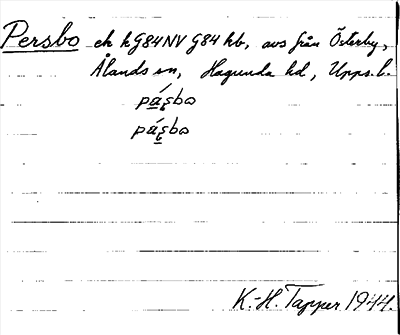 Persbo ek kG84NV G84 hb, avs från Österby,
Ålands sn, Hagunda hd, Upps. l.
pá̱ʂbo
pá̱ʂbo
K.-H. Tapper 1944.